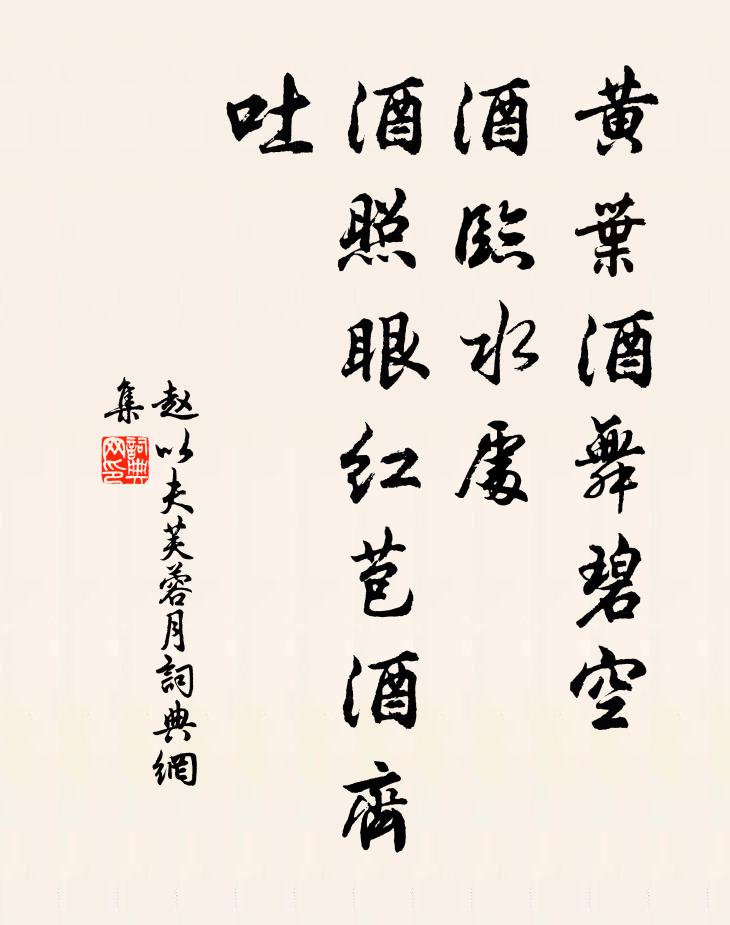 黄葉酒舞碧空
酒臨水處
酒照眼红苞酒齊
吐
赵以夫芙蓉月詞典網
集
詞典
网印